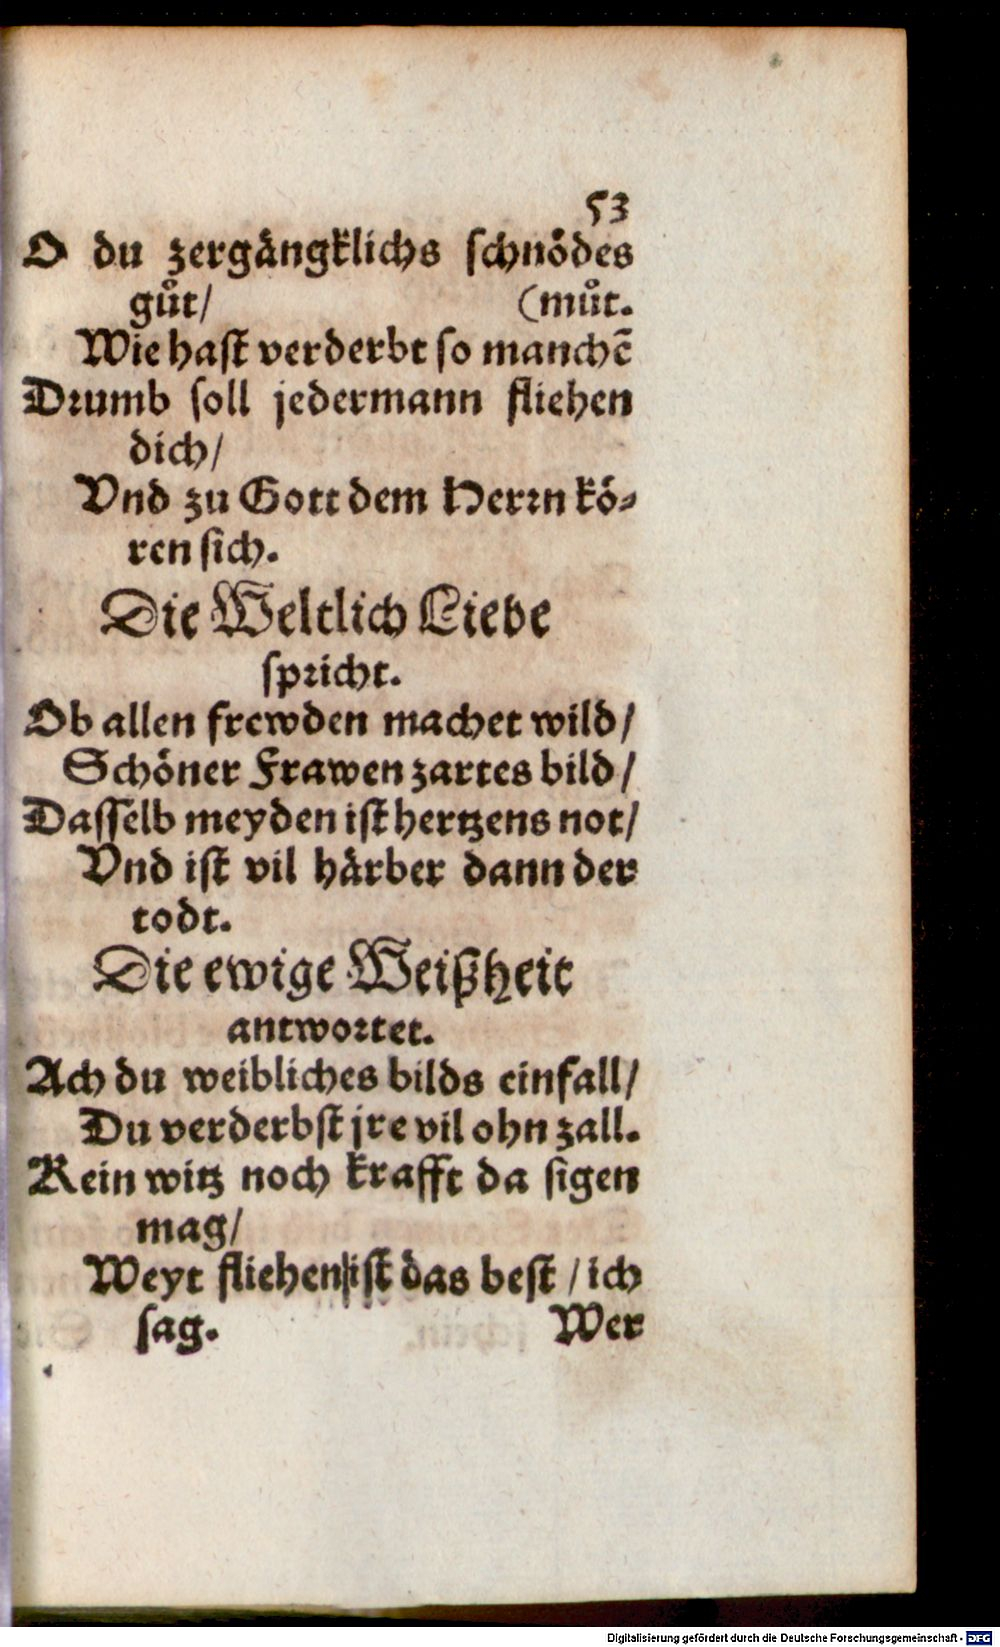 53
O du zergängklichs schnödes
gůt/ (můt.
Wie hast verderbt so manchē
Drumb soll jedermann fliehen
dich/
Vnd zu Gott dem Herrn kö⸗
ren sich.
Die Weltlich Liebe
spricht.
Ob allen frewden machet wild/
Schöner Frawen zartes bild/
Dasselb meyden ist hertzens not/
Vnd ist vil härber dann der
todt.
Die ewige Weißheit
antwortet.
Ach du weibliches bilds einfall/
Du verderbst jre vil ohn zall.
Kein witz noch krafft da sigen
mag/
Weyt fliehen/ist das best / ich
sag. Wer
Digitalisierung gefördert durch die Deutsche Forschungsgemeinschaft - DFG